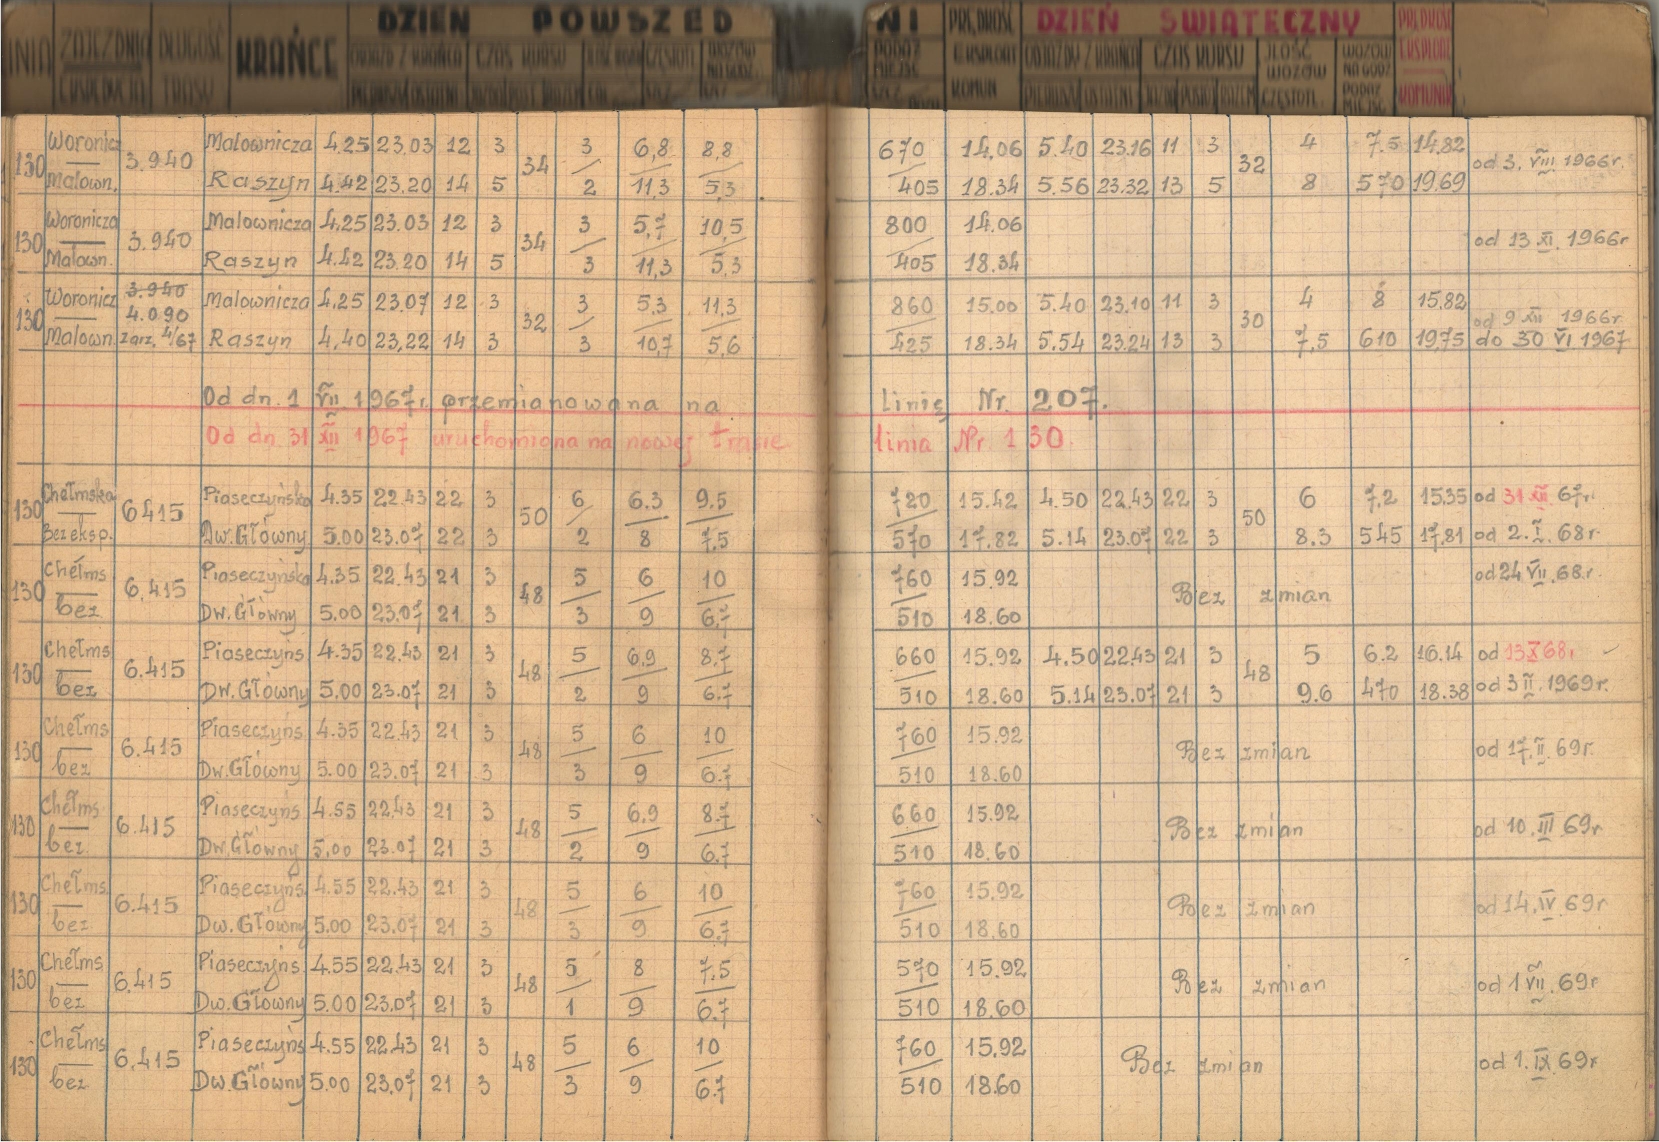 DZIEŃ POWSZED NI PRĘDKOŚĆ DZIEŃ ŚWIĄTECZNY
ZAJEZDNIA DŁUGOŚĆ KRAŃCE CZAS KURSU CZAS KURSU ILOŚĆ WOZÓW
TRASY KOMUN CZĘSTOTL.
Woronicz Malownicza 4.25 23.03 12 3 3 6,8 8,8 670 14.06 5.40 23.16 11 3 4 7.5 14.82
130 3.940 34 32 od 3. VIII 1966r.
Malown. Raszyn 4.42 23.20 14 5 2 11,3 5,3 405 18.34 5.56 23.32 13 5 8 570 19.69
Woronicza Malownicza 4.25 23.03 12 3 3 5,7 10,5 800 14.06
130 3.940 34 od 13 XI. 1966r
Malown. Raszyn 4.42 23.20 14 5 3 11,3 5,3 405 18.34
Woronicz 3.940 Malownicza 4.25 23.07 12 3 3 5.3 11,3 860 15.00 5.40 23.10 11 3 4 8 15.82
130 4.090 32 30 od 9 XII 1966r.
Malown. zarz. 4/67 Raszyn 4,40 23,22 14 3 3 10,7 5,6 425 18.34 5.54 23.24 13 3 7,5 610 19,75 do 30 VI 1967
Od dn. 1 VII 1967r. przemianowana na linię Nr. 207.
Od dn. 31 XII 1967 uruchomiona na nowej trasie linia Nr 130.
Chełmska Piaseczyńska 4.35 22.43 22 3 6 6.3 9.5 720 15.42 4.50 22.43 22 3 6 7,2 15.35 od 31 XII. 67r.
130 6415 50 50
Bez eksp. Dw. Główny 5.00 23.07 22 3 2 8 7,5 570 17.82 5.14 23.07 22 3 8.3 545 17,81 od 2. I. 68r.
Chełms Piaseczyńska 4.35 22.43 21 3 5 6 10 760 15.92 od 24 VII. 68.r.
130 6.415 48 Bez zmian
bez Dw. Główny 5.00 23.07 21 3 3 9 6,7 510 18.60
Chełms Piaseczyńs 4.35 22.43 21 3 5 6,9 8.7 660 15.92 4.50 22.43 21 3 5 6.2 16.14 od 13 X 68r
130 6.415 48 48
bez Dw. Główny 5.00 23.07 21 3 2 9 6.7 510 18.60 5.14 23.07 21 3 9.6 470 18.38 od 3 II. 1969r.
Chełms Piaseczyńs 4.35 22.43 21 3 5 6 10 760 15.92
130 6.415 48 Bez zmian od 17. II. 69r.
bez Dw. Główny 5.00 23.07 21 3 3 9 6.7 510 18.60
Chełms Piaseczyńs 4.55 22.43 21 3 5 6,9 8.7 660 15.92
130 6.415 48 Bez zmian od 10. III 69r
bez. Dw. Główny 5.00 23.07 21 3 2 9 6.7 510 18.60
Chełms. Piaseczyńs 4.55 22.43 21 3 5 6 10 760 15.92
130 6.415 48 Bez zmian od 14. IV 69r
bez Dw. Główny 5.00 23.07 21 3 3 9 6.7 510 18.60
Chełms Piaseczyńs 4.55 22.43 21 3 5 8 7,5 570 15.92
130 6.415 48 Bez zmian od 1 VII. 69r
bez Dw. Główny 5.00 23.07 21 3 1 9 6.7 510 18.60
Chełms Piaseczyńs 4.55 22.43 21 3 5 6 10 760 15.92
130 6.415 48 Bez zmian od 1. IX 69r
bez Dw. Główny 5.00 23.07 21 3 3 9 6.7 510 18.60